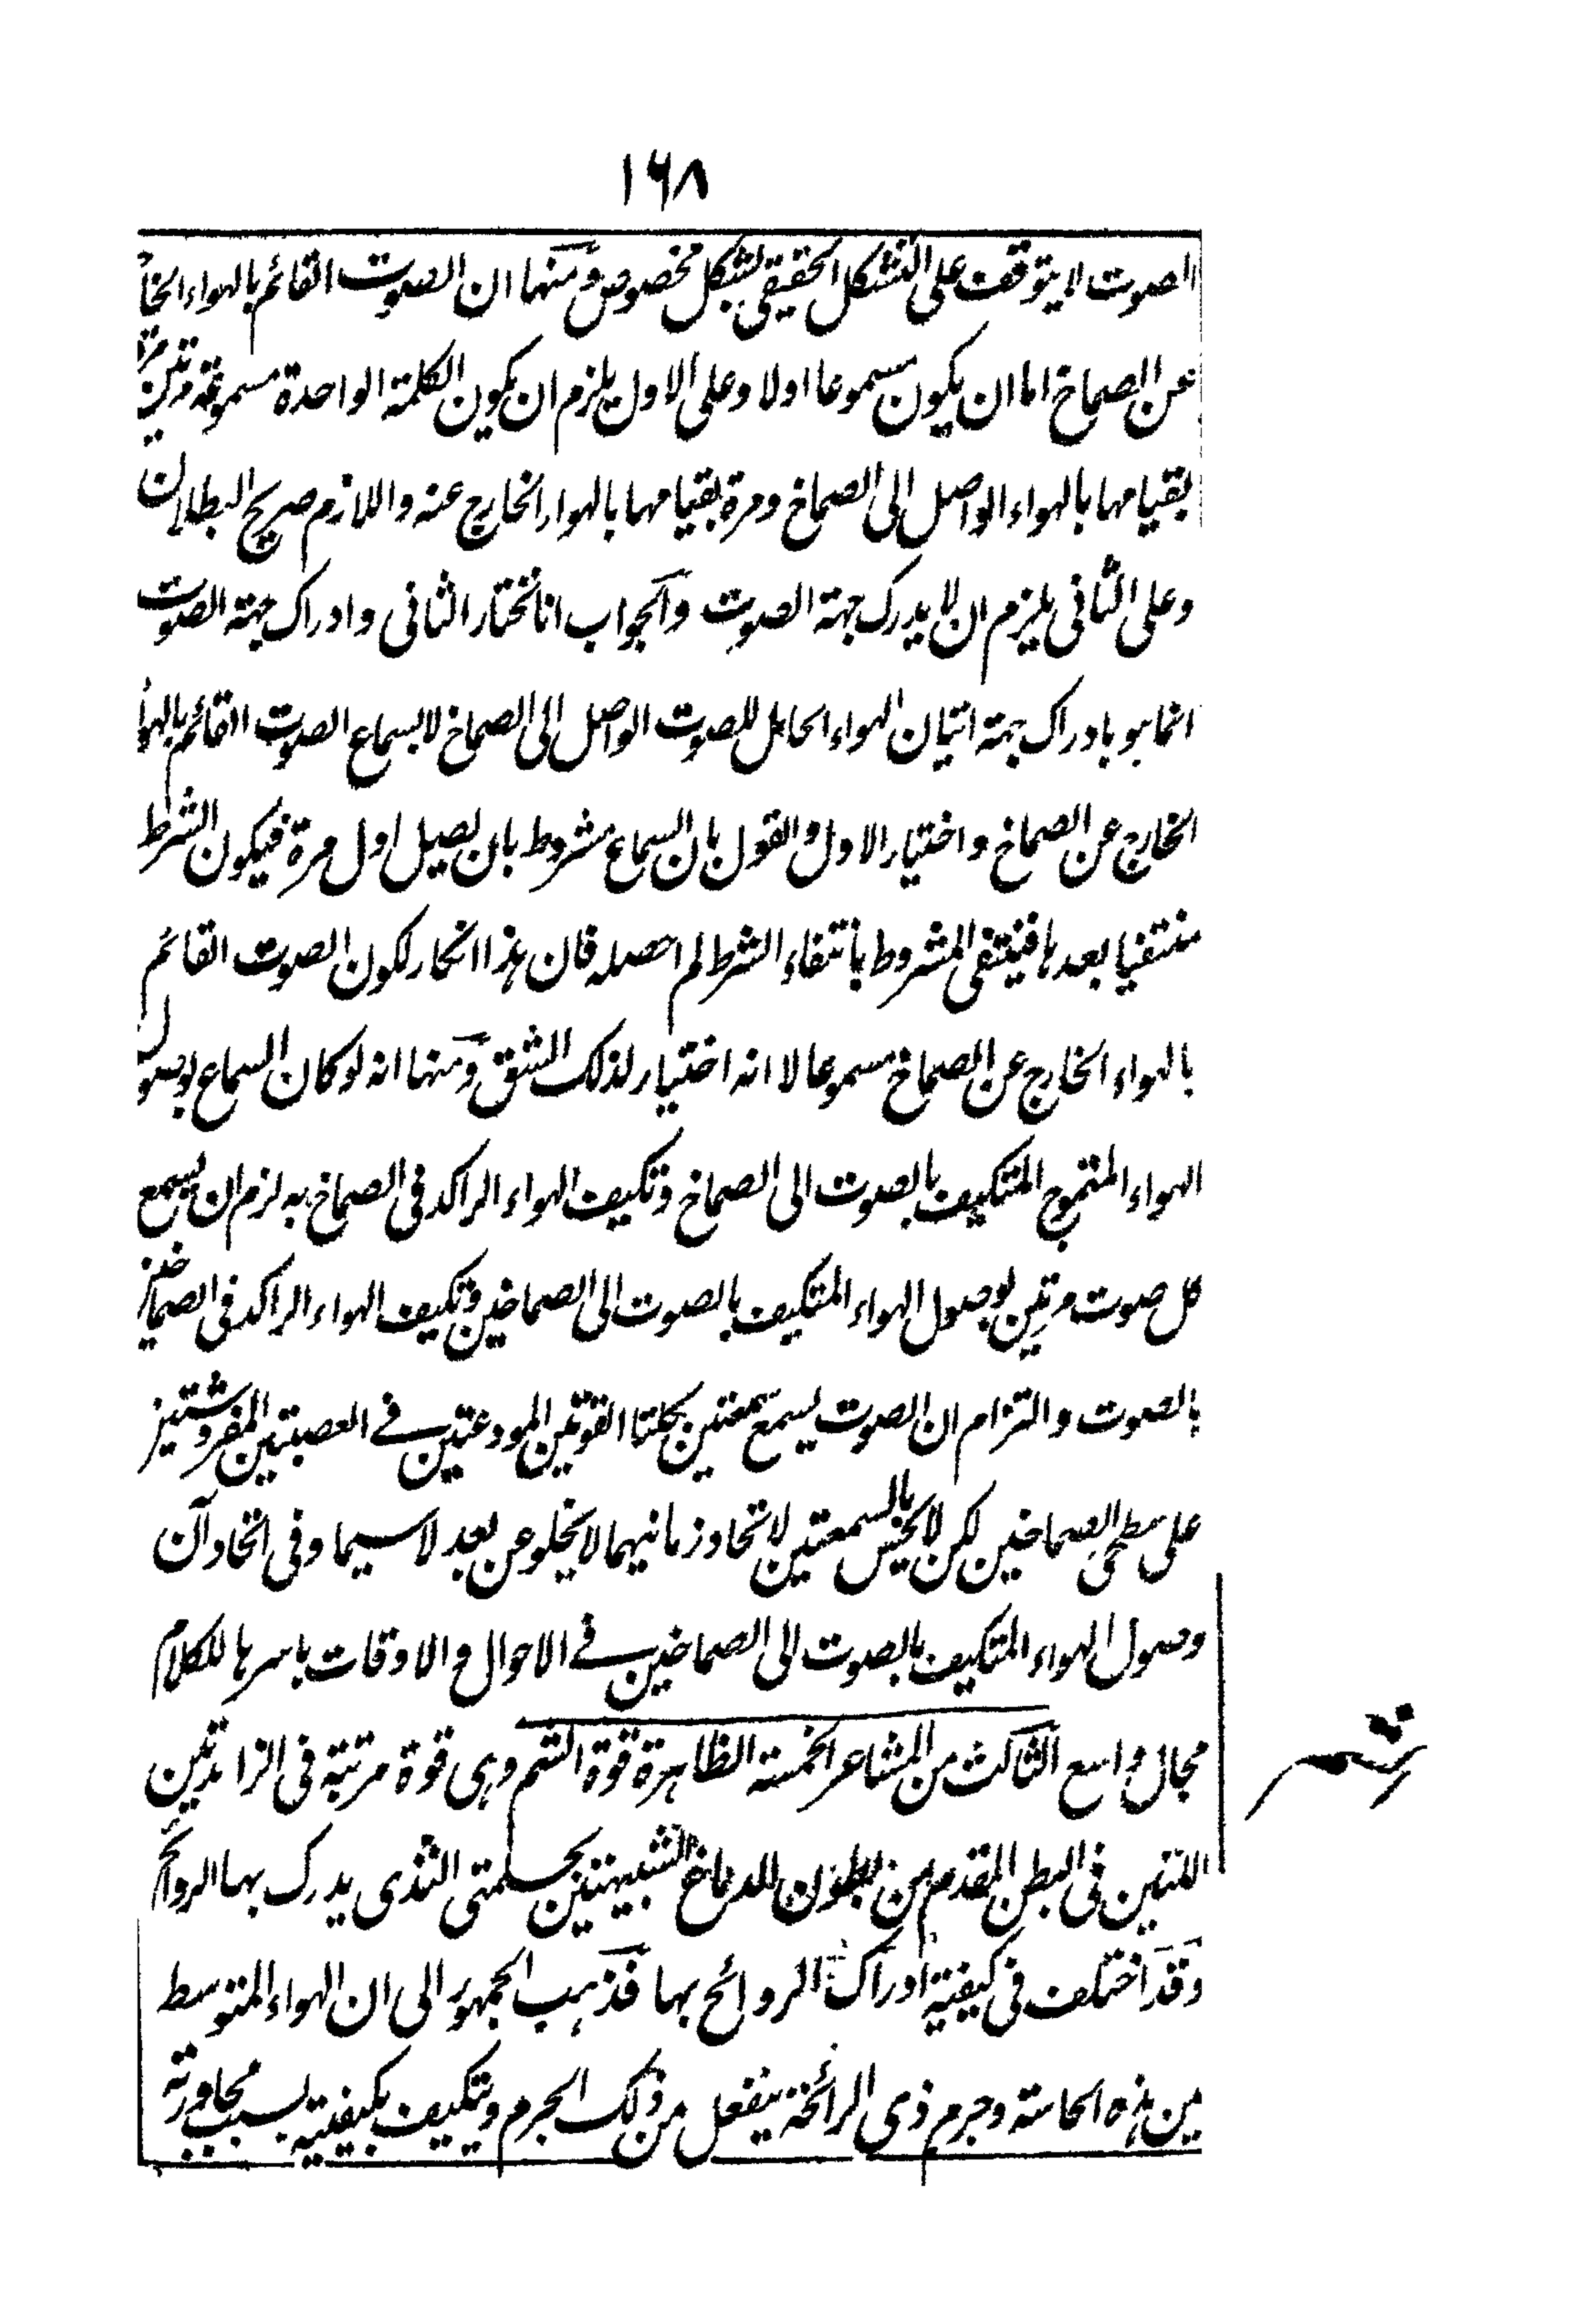 ١٦٨
الصوت لا يتوقف على التشكل الحقيقى بشكل مخصوص ومنها ان الصوت القائم بالهواء الخارج
عن الصماخ اما ان يكون مسموعا اولا وعلى الاول يلزم ان يكون الكلمة الواحدة مسموعة مرتين مرة
بقيامها بالهواء الواصل الى الصماخ ومرة بقيامها بالهواء الخارج عنه واللازم صريح البطلان
وعلى الثانى يلزم ان لا يدرك جهة الصوت والجواب انا نختار الثانى وادراك جهة الصوت
انما هو بادراك جهة اتيان الهواء الحامل للصوت الواصل الى الصماخ لا بسماع الصوت القائم بالهواء
الخارج عن الصماخ واختيار الاول والقول بان السماع مشروط بان يصل اول مرة فيكون الشرط
منتفيا بعدها فينتفى المشروط بانتفاء الشرط لم احصله فان هذا انكار لكون الصوت القائم
بالهواء الخارج عن الصماخ مسموعا لا انه اختيار لذلك الشق ومنها انه لو كان السماع بوصول
الهواء المتموج المتكيف بالصوت الى الصماخ وتكيف الهواء الراكد فى الصماخ به لزم ان يسمع
كل صوت مرتين لوصول الهواء المتكيف بالصوت الى الصماخين وتكيف الهواء الراكد فى الصماخين
بالصوت والتزام ان الصوت يسمع سمعتين بكلتا القوتين المودعتين فى العصبتين المفروشتين
على سطحى الصماخين لكن لا يحس بالسمعتين لاتحاد زمانيهما لا يخلو عن بعد لا سيما وفى اتحاد آن
وصول الهواء المتكيف بالصوت الى الصماخين فى الاحوال والاوقات باسرها للكلام
مجال واسع الثالث من المشاعر الخمسة الظاهرة قوة الشم وهى قوة مرتبة فى الزائدتين
اللتين فى البطن المقدم من بطون الدماغ الشبيهتين بحلمتى الثدى يدرك بها الروائح
وقد اختلف فى كيفية ادراك الروائح بها فذهب الجمهور الى ان الهواء المتوسط
بين هذه الحاسة وجرم ذى الرائحة ينفعل من ذلك الجرم ويتكيف بكيفيته بسبب مجاورته